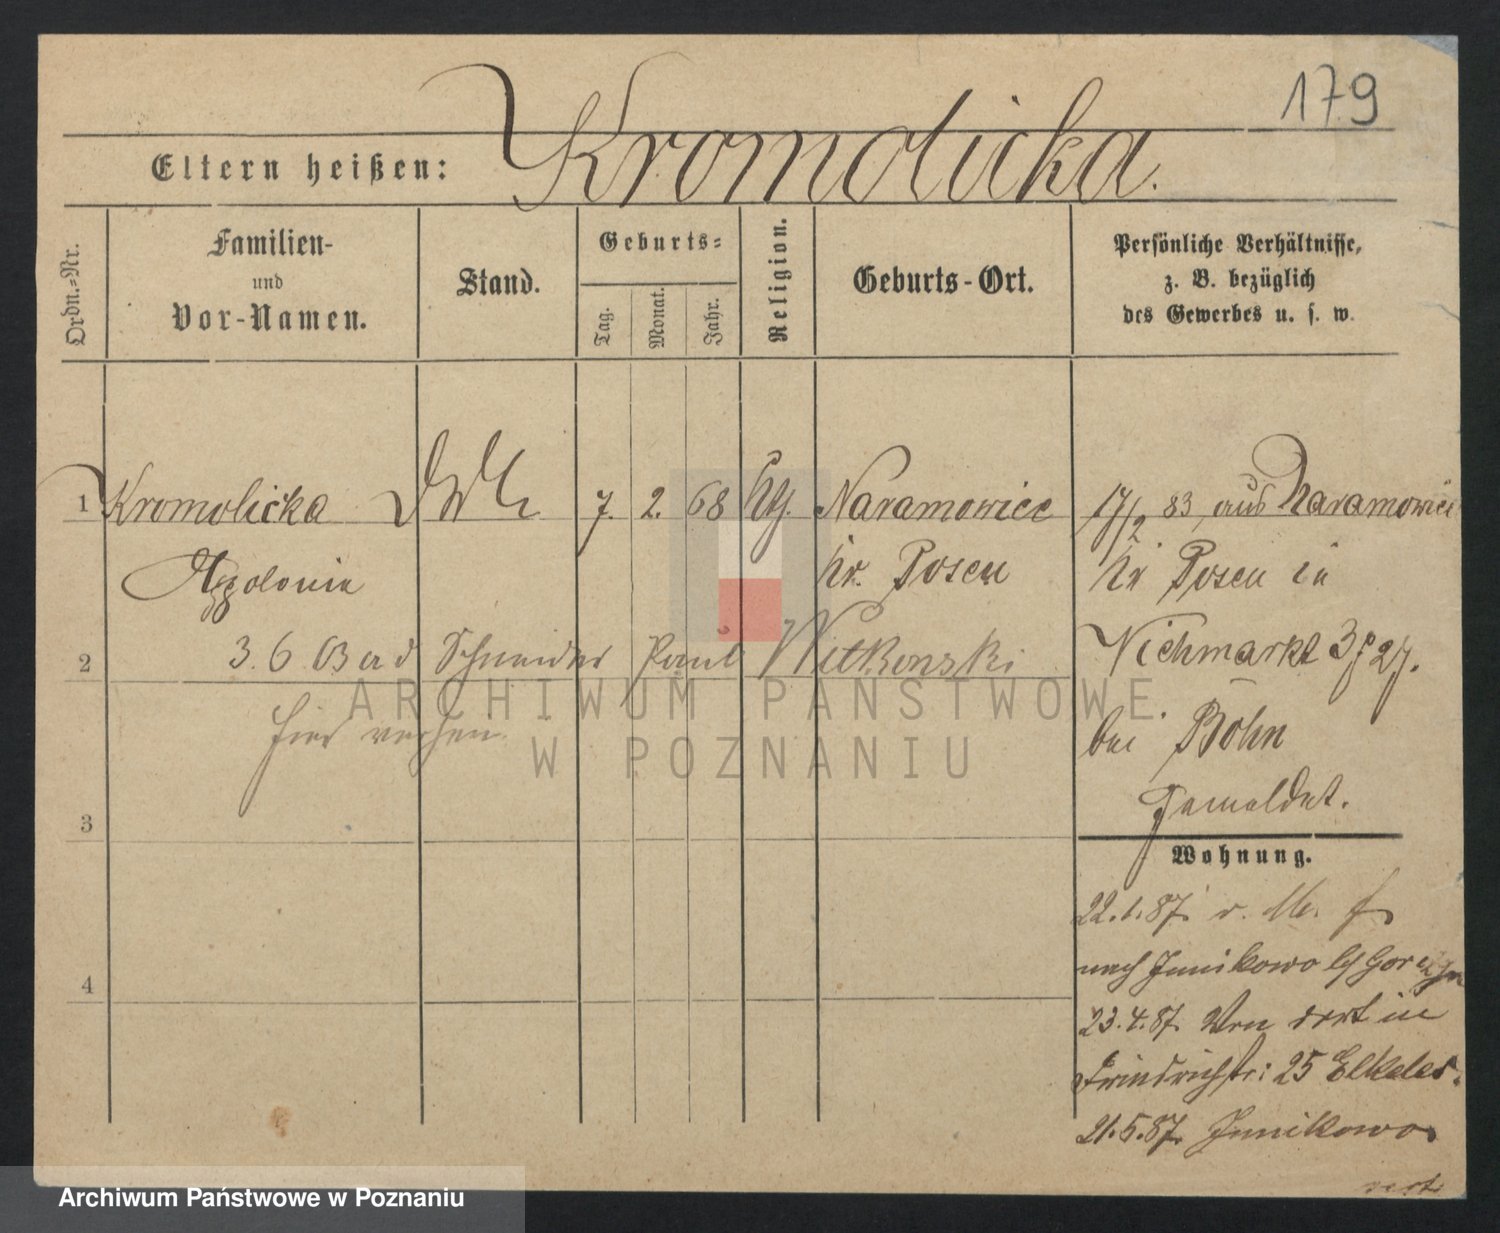 179
Eltern heißen: Kromolicka.
Ordn.-Nr.
Familien-
und
Vor-Namen.
Stand.
Geburts-
Tag.
Monat.
Jahr.
Religion.
Geburts-Ort.
Persönliche Verhältnisse,
z. B. bezüglich
des Gewerbes u. s. w.
1 Kromolicka 7. 2. 68 kth. Naramowice 17/2 83 aus Naramowice
Apolonia Kr. Posen Kr Posen in
2 3. 6 03 Schneider Paul Witkonski
Viehmarkt 3 27.
hier
bei Böhn
3 Gemeldet.
Wohnung.
22.1.87. v.
nach Junikowo
4
23.4.87. Von dort in
Friedrichstr: 25 Elkeles.
21.5.87. Junikowo
ARCHIWUM PAŃSTWOWE
W POZNANIU
Archiwum Państwowe w Poznaniu